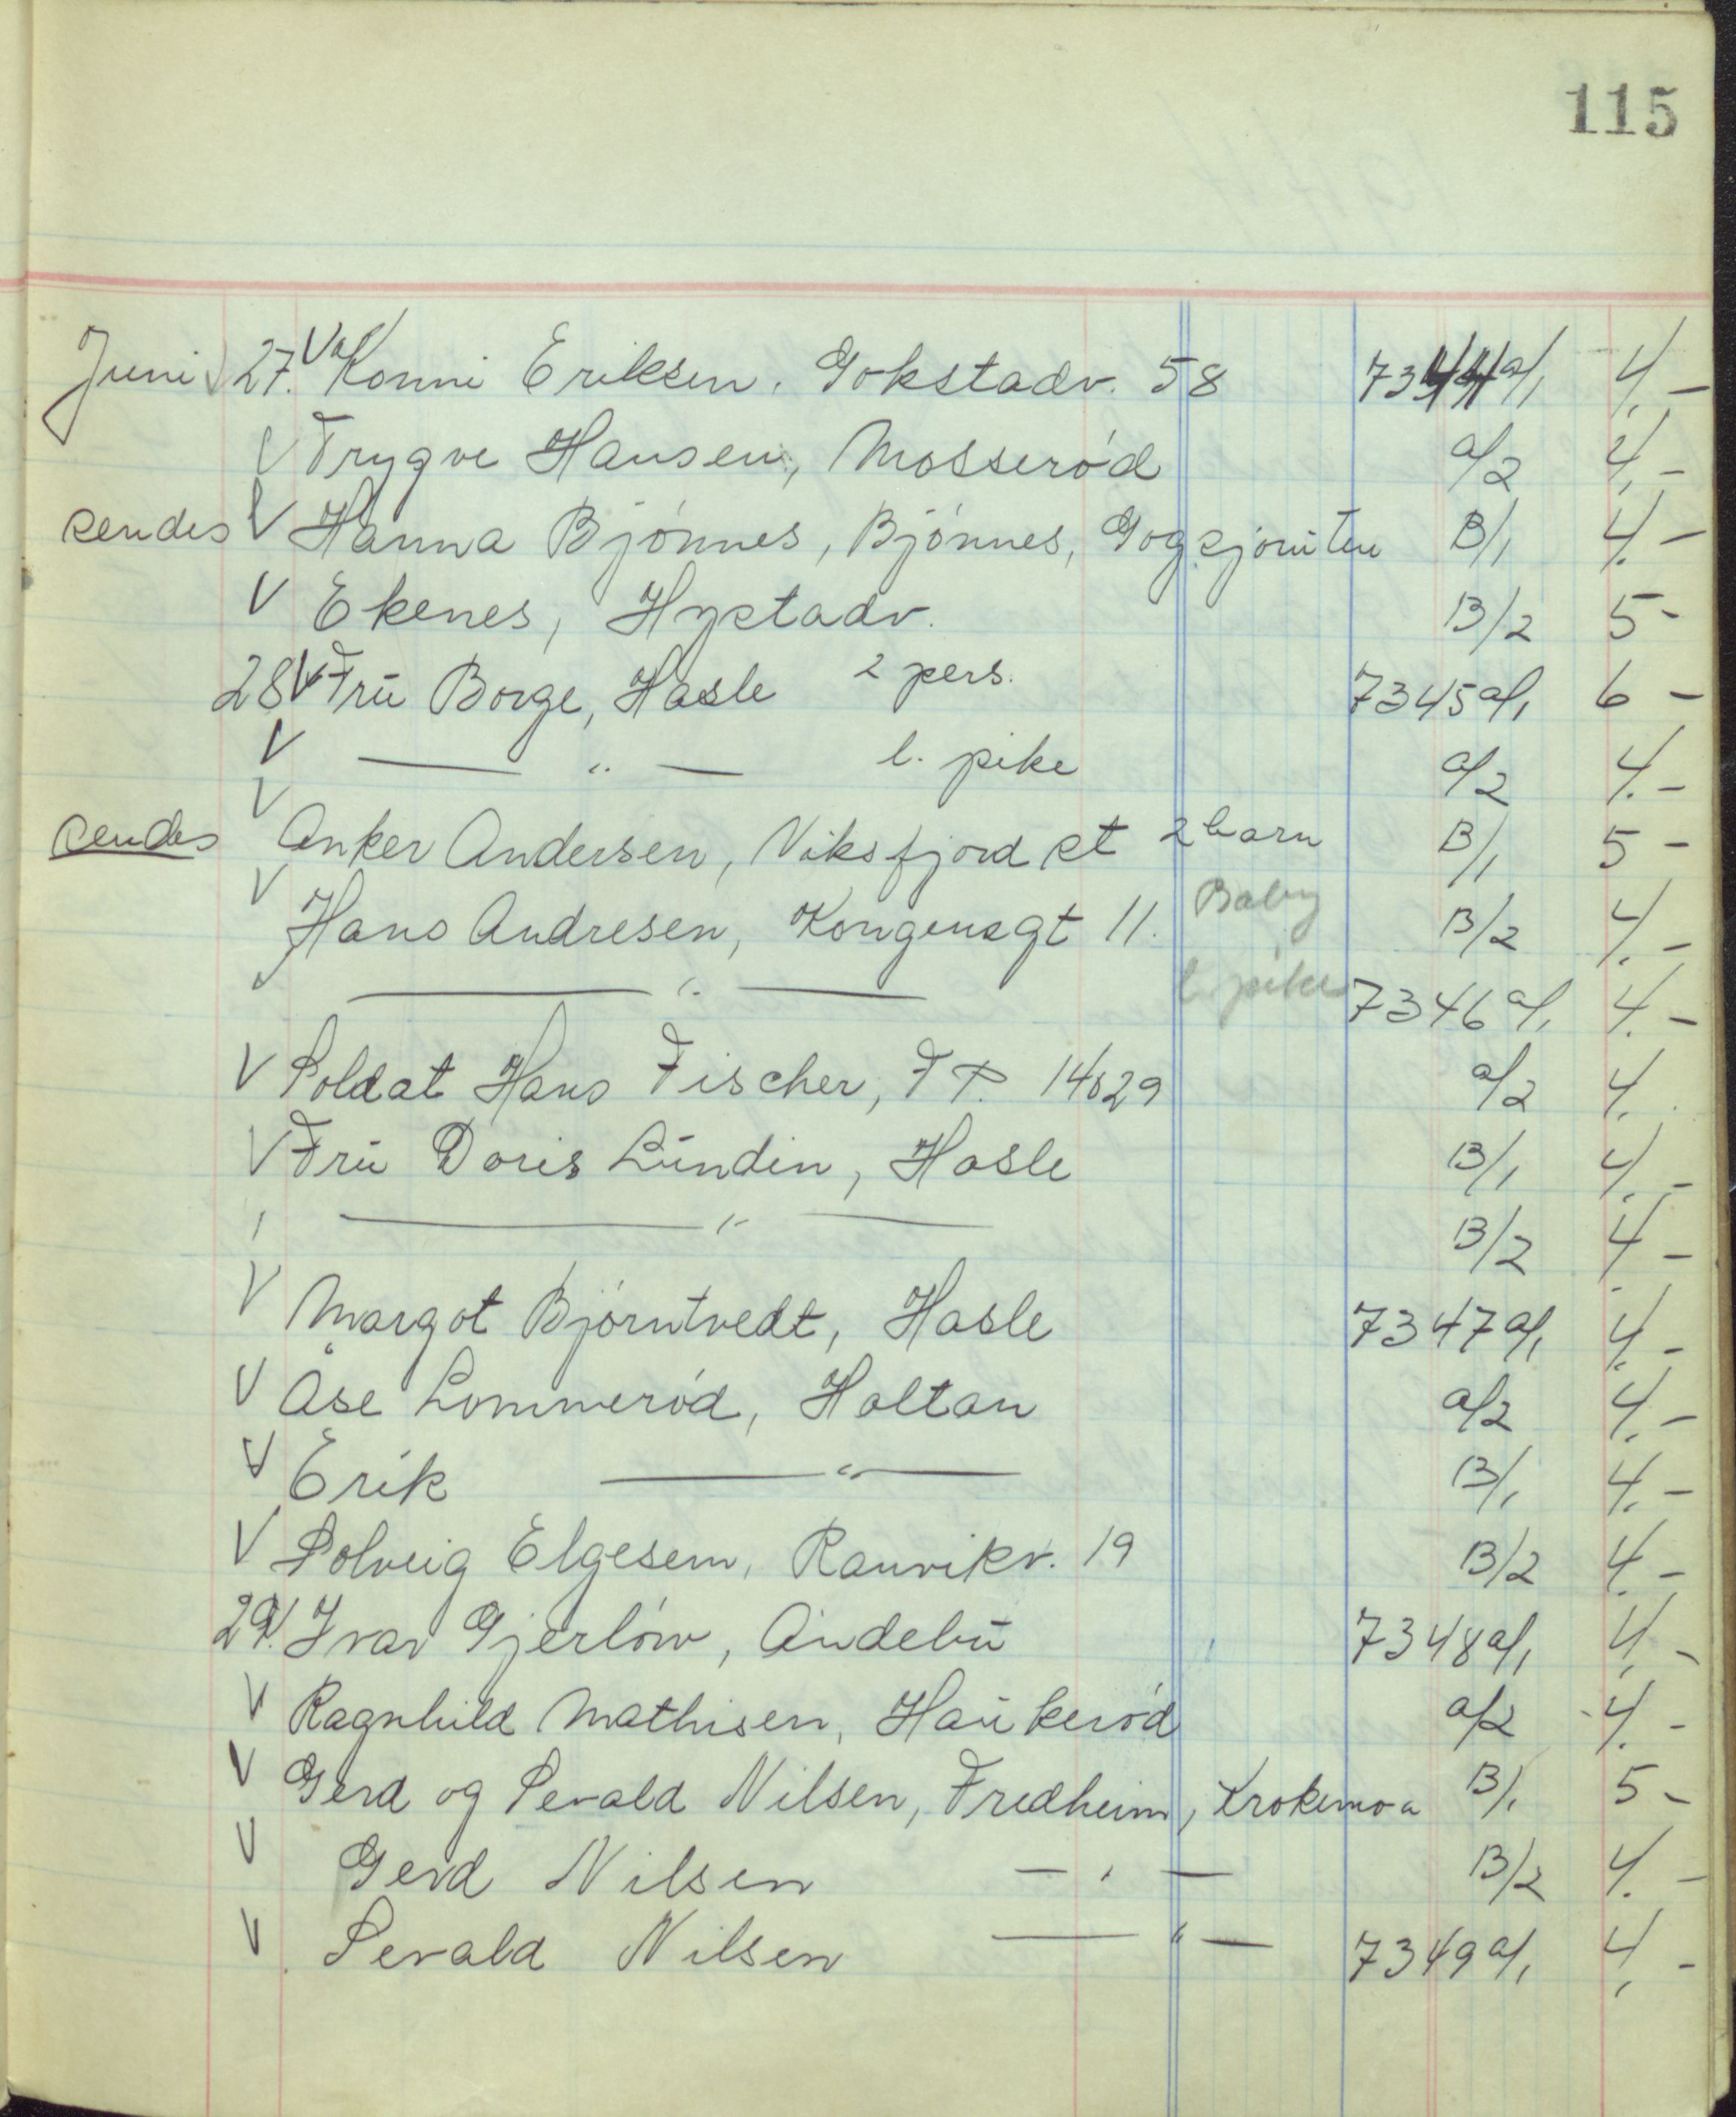 115
Juni V 27. V Konni Eriksen, Gokstadv. 58 7344 a/1 4,-
V Trygve Hansen, Mosserød a/2 4,-
sendes V Hanna Bjønnes, Bjønnes, Gogsjøruten B/1 4.-
V Ekenes, Hystadv. B/2 5-
28 V Frū Borge, Hasle 2 pers. 7345 a/1 6-
V — " — l. pike a/2 4.-
sendes V Anker Andersen, Viksfjord st 2 barn B/1 5-
V Hans Andresen, Kongensgt 11. Baby B/2 4.-
V — " — l. pike 7346 a/1 4.-
V Soldat Hans Fischer, F P. 14829 a/2 4.
V Frū Doris Lūndin, Hasle B/1 4.-
— " — B/2 4-
V Margot Bjørntvedt, Hasle 7347 a/1 4.-
V Åse Lommerød, Holtan a/2 4.-
V Erik — " — B/1 4.-
V Solveig Elgesem, Ranvikv. 19 B/2 4.-
29. V Ivar Gjerløw, Andebū 7348 a/1 4,-
V Ragnhild Mathisen, Haūkerød a/2 4.-
V Gerd og Sevald Nilsen, Fredheim, Krokemoa B/1 5-
V Gerd Nilsen — " — B/2 4.-
V Sevald Nilsen — " — 7349 a/1 4,-